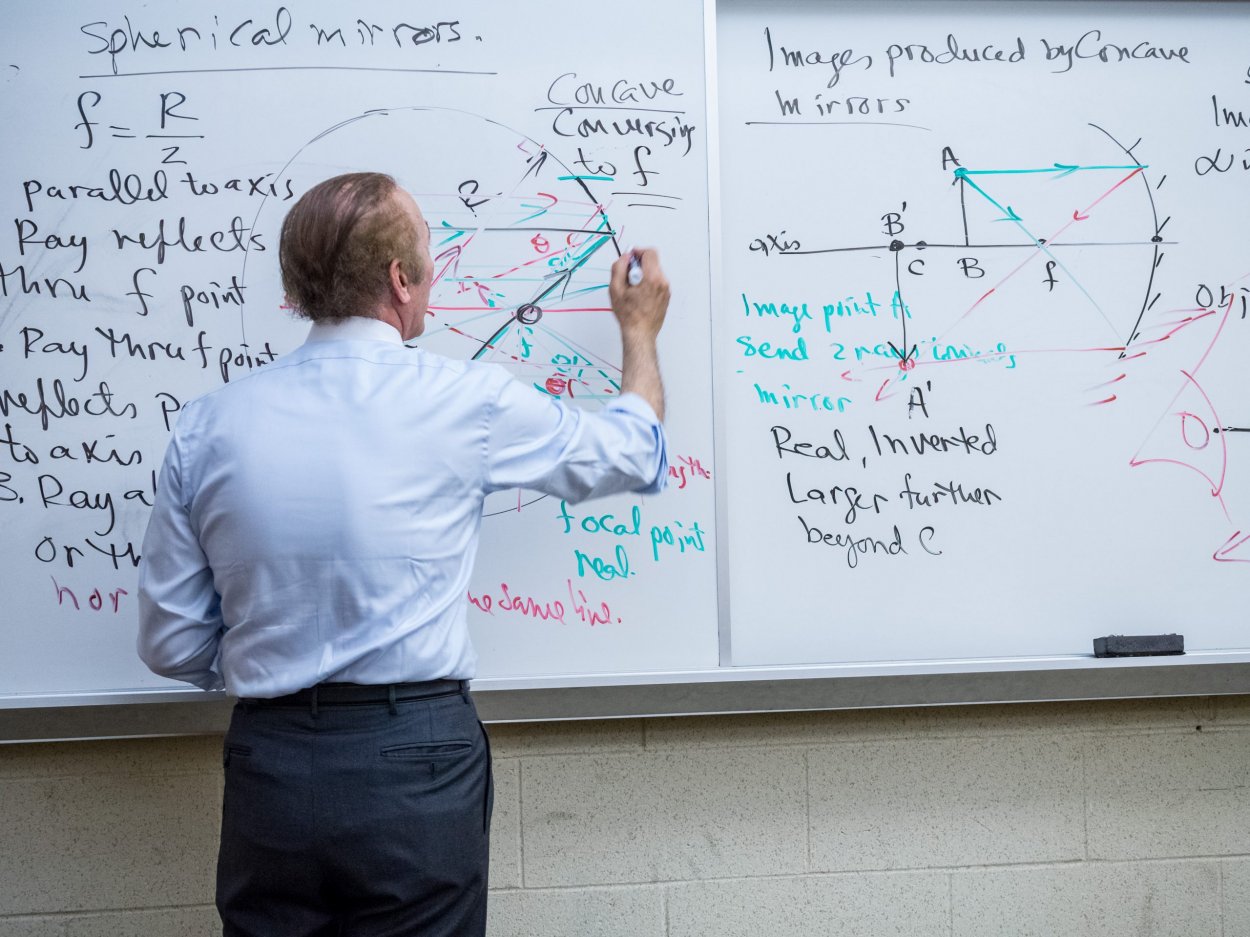 Spherical mirrors.
f = R
2
parallel to axis
Ray reflects
thru f point
Ray thru f point
reflects
to axis
3. Ray
or
hor
Concave
Converging
to f
R
θ
f
θr
focal point
real.
the same line.
Images produced by Concave
mirrors
A
B'
axis
C
B
f
Image point A
Send 2 rays
mirror
A'
Real, Inverted
Larger further
beyond C
O